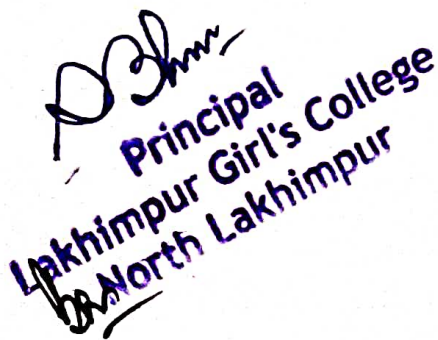 Principal
Lakhimpur Girl's College
North Lakhimpur